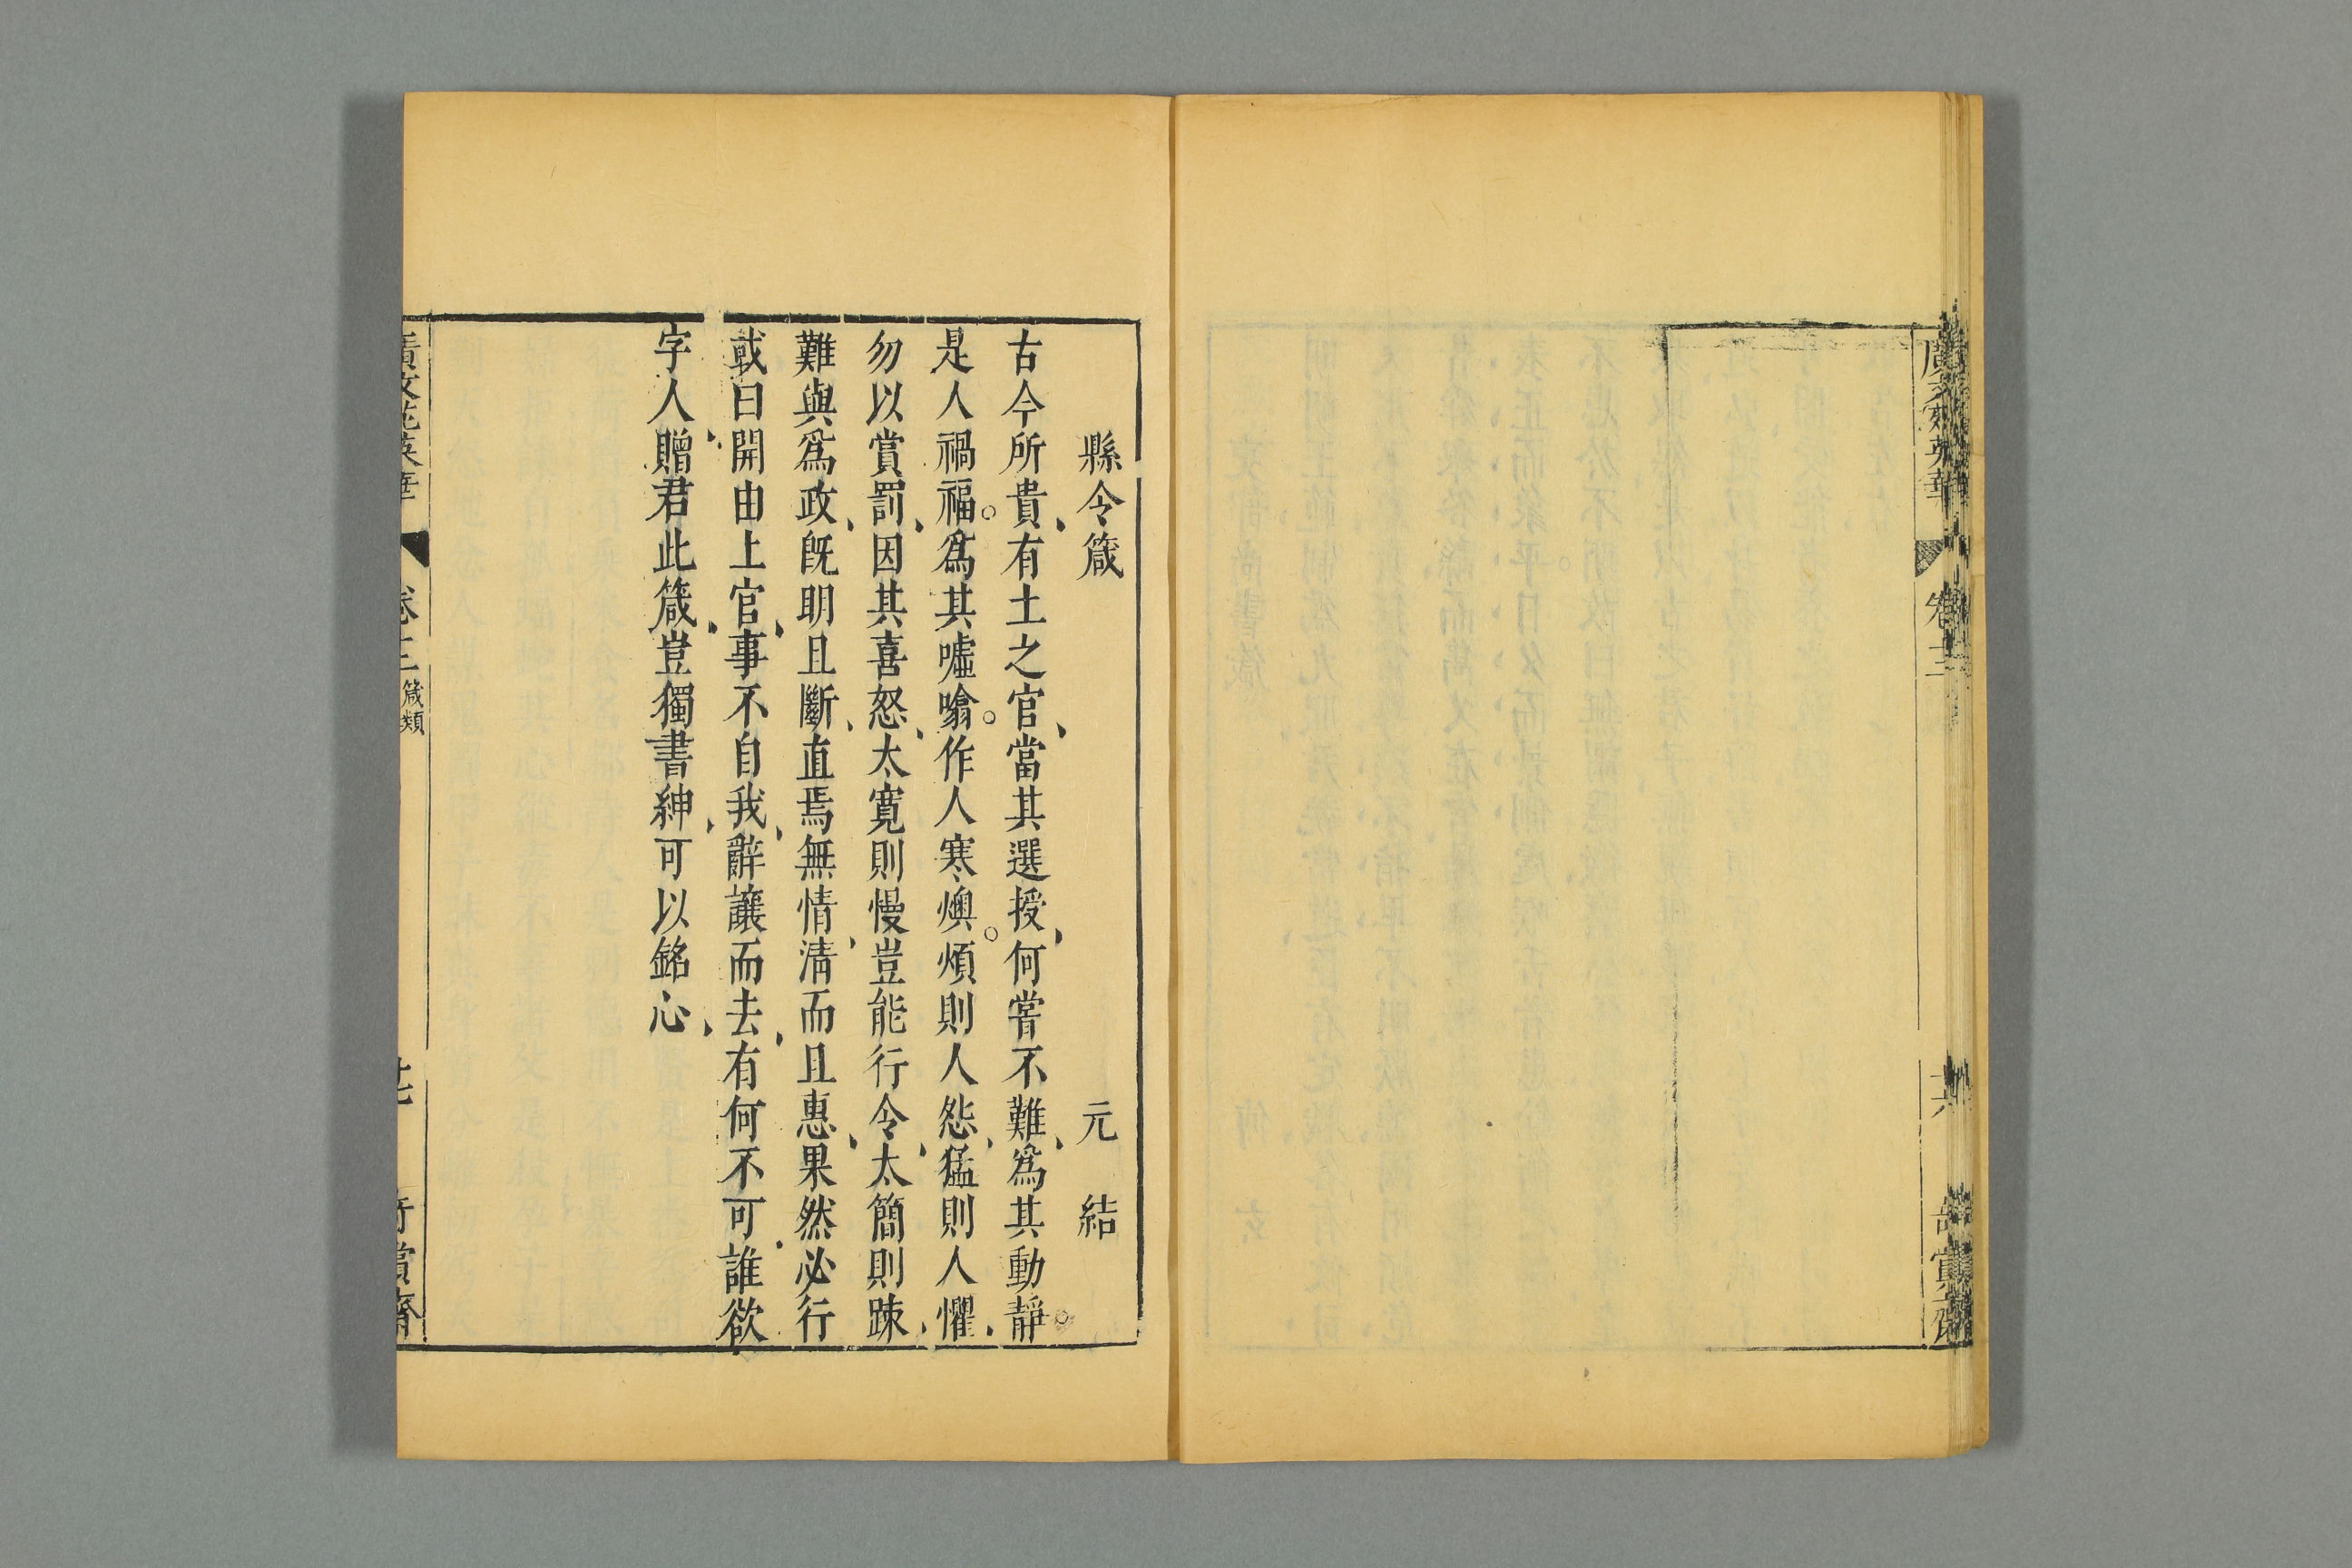 廣文苑英華
縣令箴 元結
古今所貴有土之官當其選授何嘗不難爲其動靜
是人禍福爲其噓噏作人寒燠煩則人怨猛則人懼
勿以賞罰因其喜怒太寛則慢豈能行令太簡則踈
難與爲政旣明且斷直焉無情清而且惠果然必行
或曰開由上官事不自我辭讓而去有何不可誰欲
字人贈君此箴豈獨書紳可以銘心
廣文苑英華 卷 箴類 賞齋